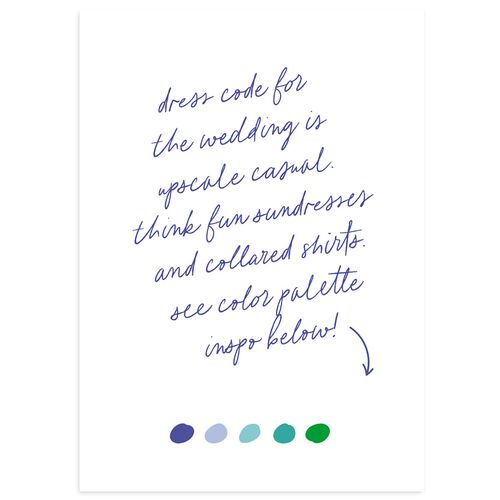 dress code for
the wedding is
upscale casual.
think fun sundresses
and collared shirts.
see color palette
inspo below!